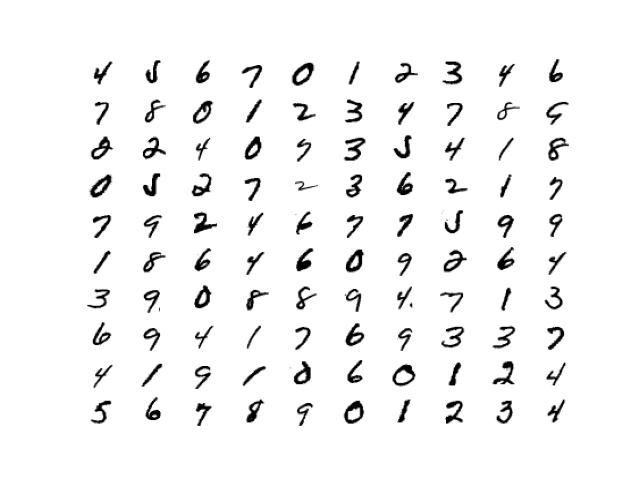 4 5 6 7 0 1 2 3 4 6
7 8 0 1 2 3 4 7 8 9
2 2 4 0 7 3 5 4 1 8
0 5 2 7 2 3 6 2 1 7
7 9 2 4 6 7 7 5 9 9
1 8 6 4 6 0 9 2 6 4
3 9 0 8 8 9 4 7 1 3
6 9 4 1 7 6 9 3 3 7
4 1 9 1 0 6 0 1 2 4
5 6 7 8 9 0 1 2 3 4